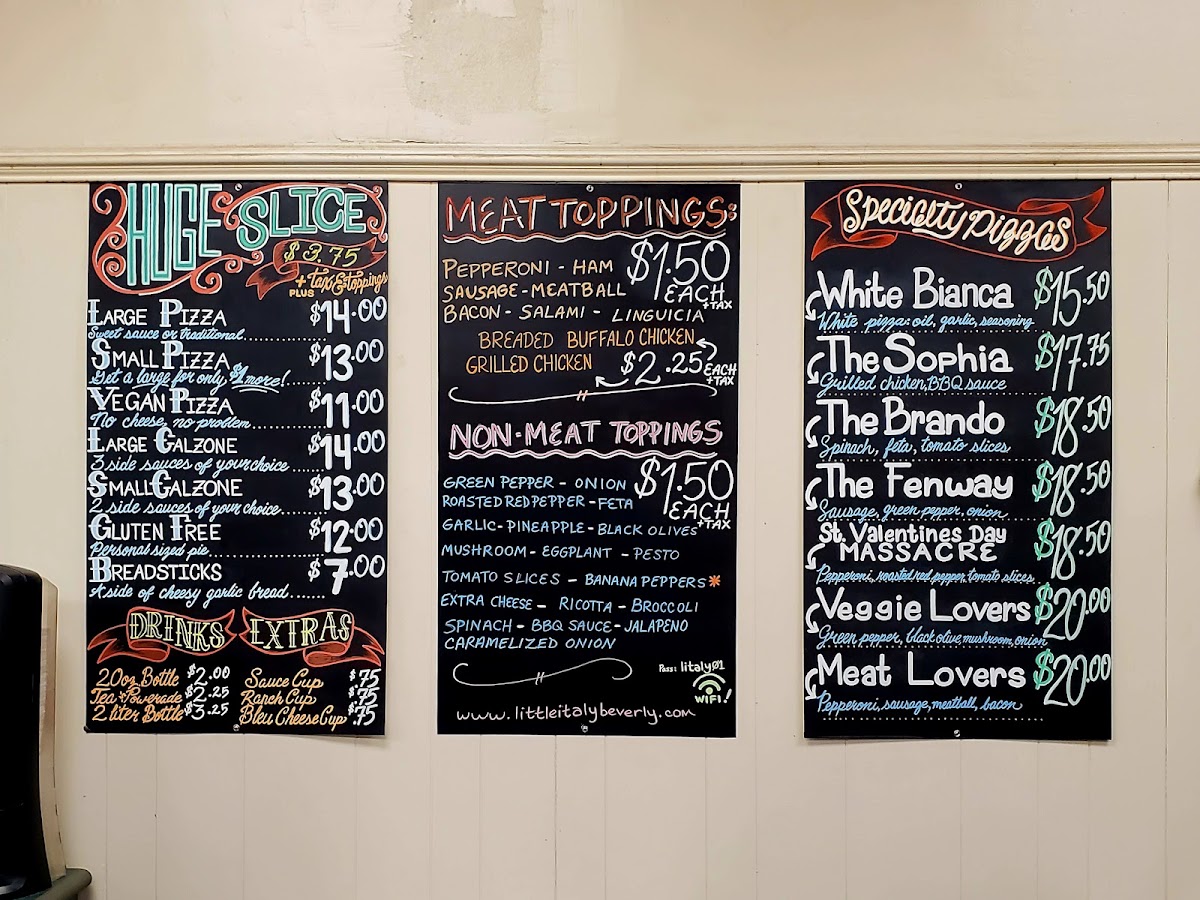 HUGE SLICE
$3.75
PLUS + tax & toppings
LARGE PIZZA $14.00
Sweet sauce or traditional
SMALL PIZZA $13.00
Get a large for only $1 more!
VEGAN PIZZA $11.00
No cheese, no problem
LARGE CALZONE $14.00
3 side sauces of your choice
SMALL CALZONE $13.00
2 side sauces of your choice
GLUTEN FREE $12.00
Personal sized pie
BREADSTICKS $7.00
A side of cheesy garlic bread
DRINKS EXTRAS
20oz Bottle $2.00 Sauce Cup $.75
Tea + Powerade $2.25 Ranch Cup $.75
2 liter Bottle $3.25 Bleu Cheese Cup $.75
MEAT TOPPINGS:
PEPPERONI - HAM $1.50
SAUSAGE - MEATBALL EACH
BACON - SALAMI - LINGUICIA +TAX
BREADED BUFFALO CHICKEN
GRILLED CHICKEN $2.25 EACH
+TAX
NON-MEAT TOPPINGS
GREEN PEPPER - ONION $1.50
ROASTED RED PEPPER - FETA EACH
GARLIC - PINEAPPLE - BLACK OLIVES +TAX
MUSHROOM - EGGPLANT - PESTO
TOMATO SLICES - BANANA PEPPERS*
EXTRA CHEESE - RICOTTA - BROCCOLI
SPINACH - BBQ SAUCE - JALAPENO
CARAMELIZED ONION
Pass: litaly01
WIFI!
www.littleitalybeverly.com
Specialty Pizzas
White Bianca $15.50
White pizza: oil, garlic, seasoning
The Sophia $17.75
Grilled chicken, BBQ sauce
The Brando $18.50
Spinach, feta, tomato slices
The Fenway $18.50
Sausage, green pepper, onion
St. Valentines Day
MASSACRE $18.50
Pepperoni, roasted red pepper, tomato slices
Veggie Lovers $20.00
Green pepper, black olive, mushroom, onion
Meat Lovers $20.00
Pepperoni, sausage, meatball, bacon